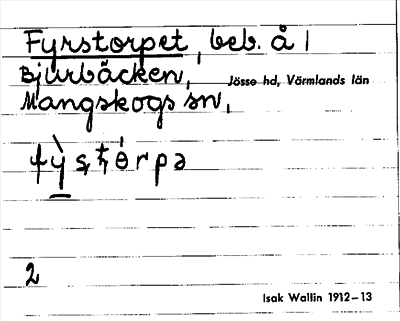 Fyrstorpet, beb. å 1
Bjurbäcken, Jösse hd, Värmlands län
Mangskogs sn,
2
Isak Wallin 1912–13